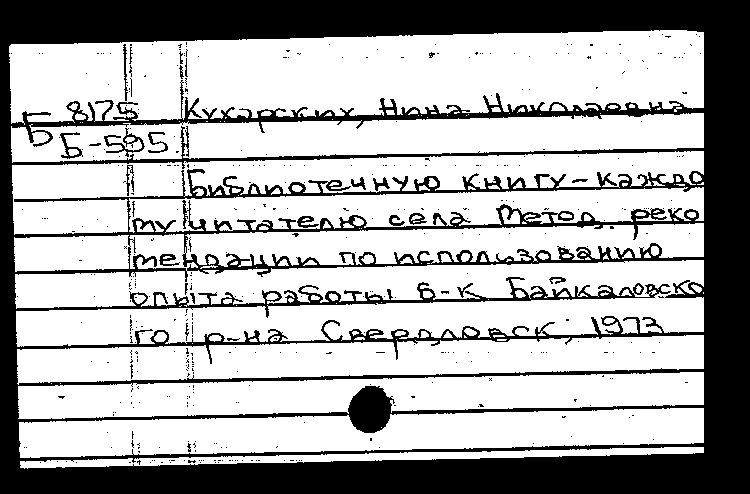 Б 8175 Кухарских, Нина Николаевна
Б-595.
Библиотечную книгу - каждо
му читателю села Метод. реко
мендации по использованию
опыта работы б-к Байкаловско
го р-на Свердловск, 1973